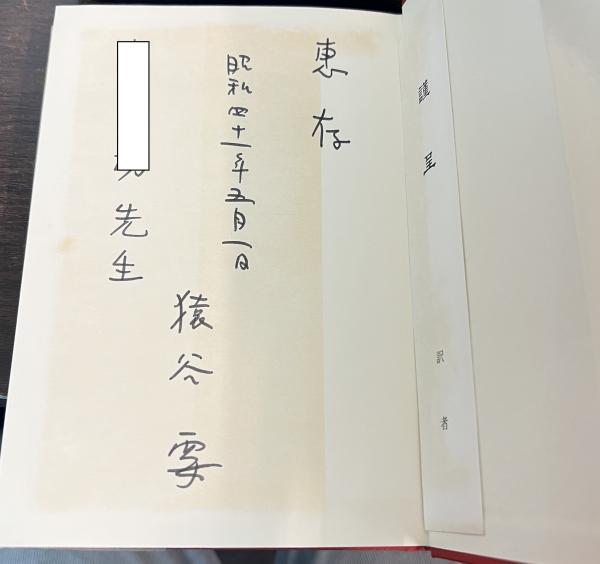 謹呈
訳者
惠存
昭和四十一年五月一日
猿谷要
先生